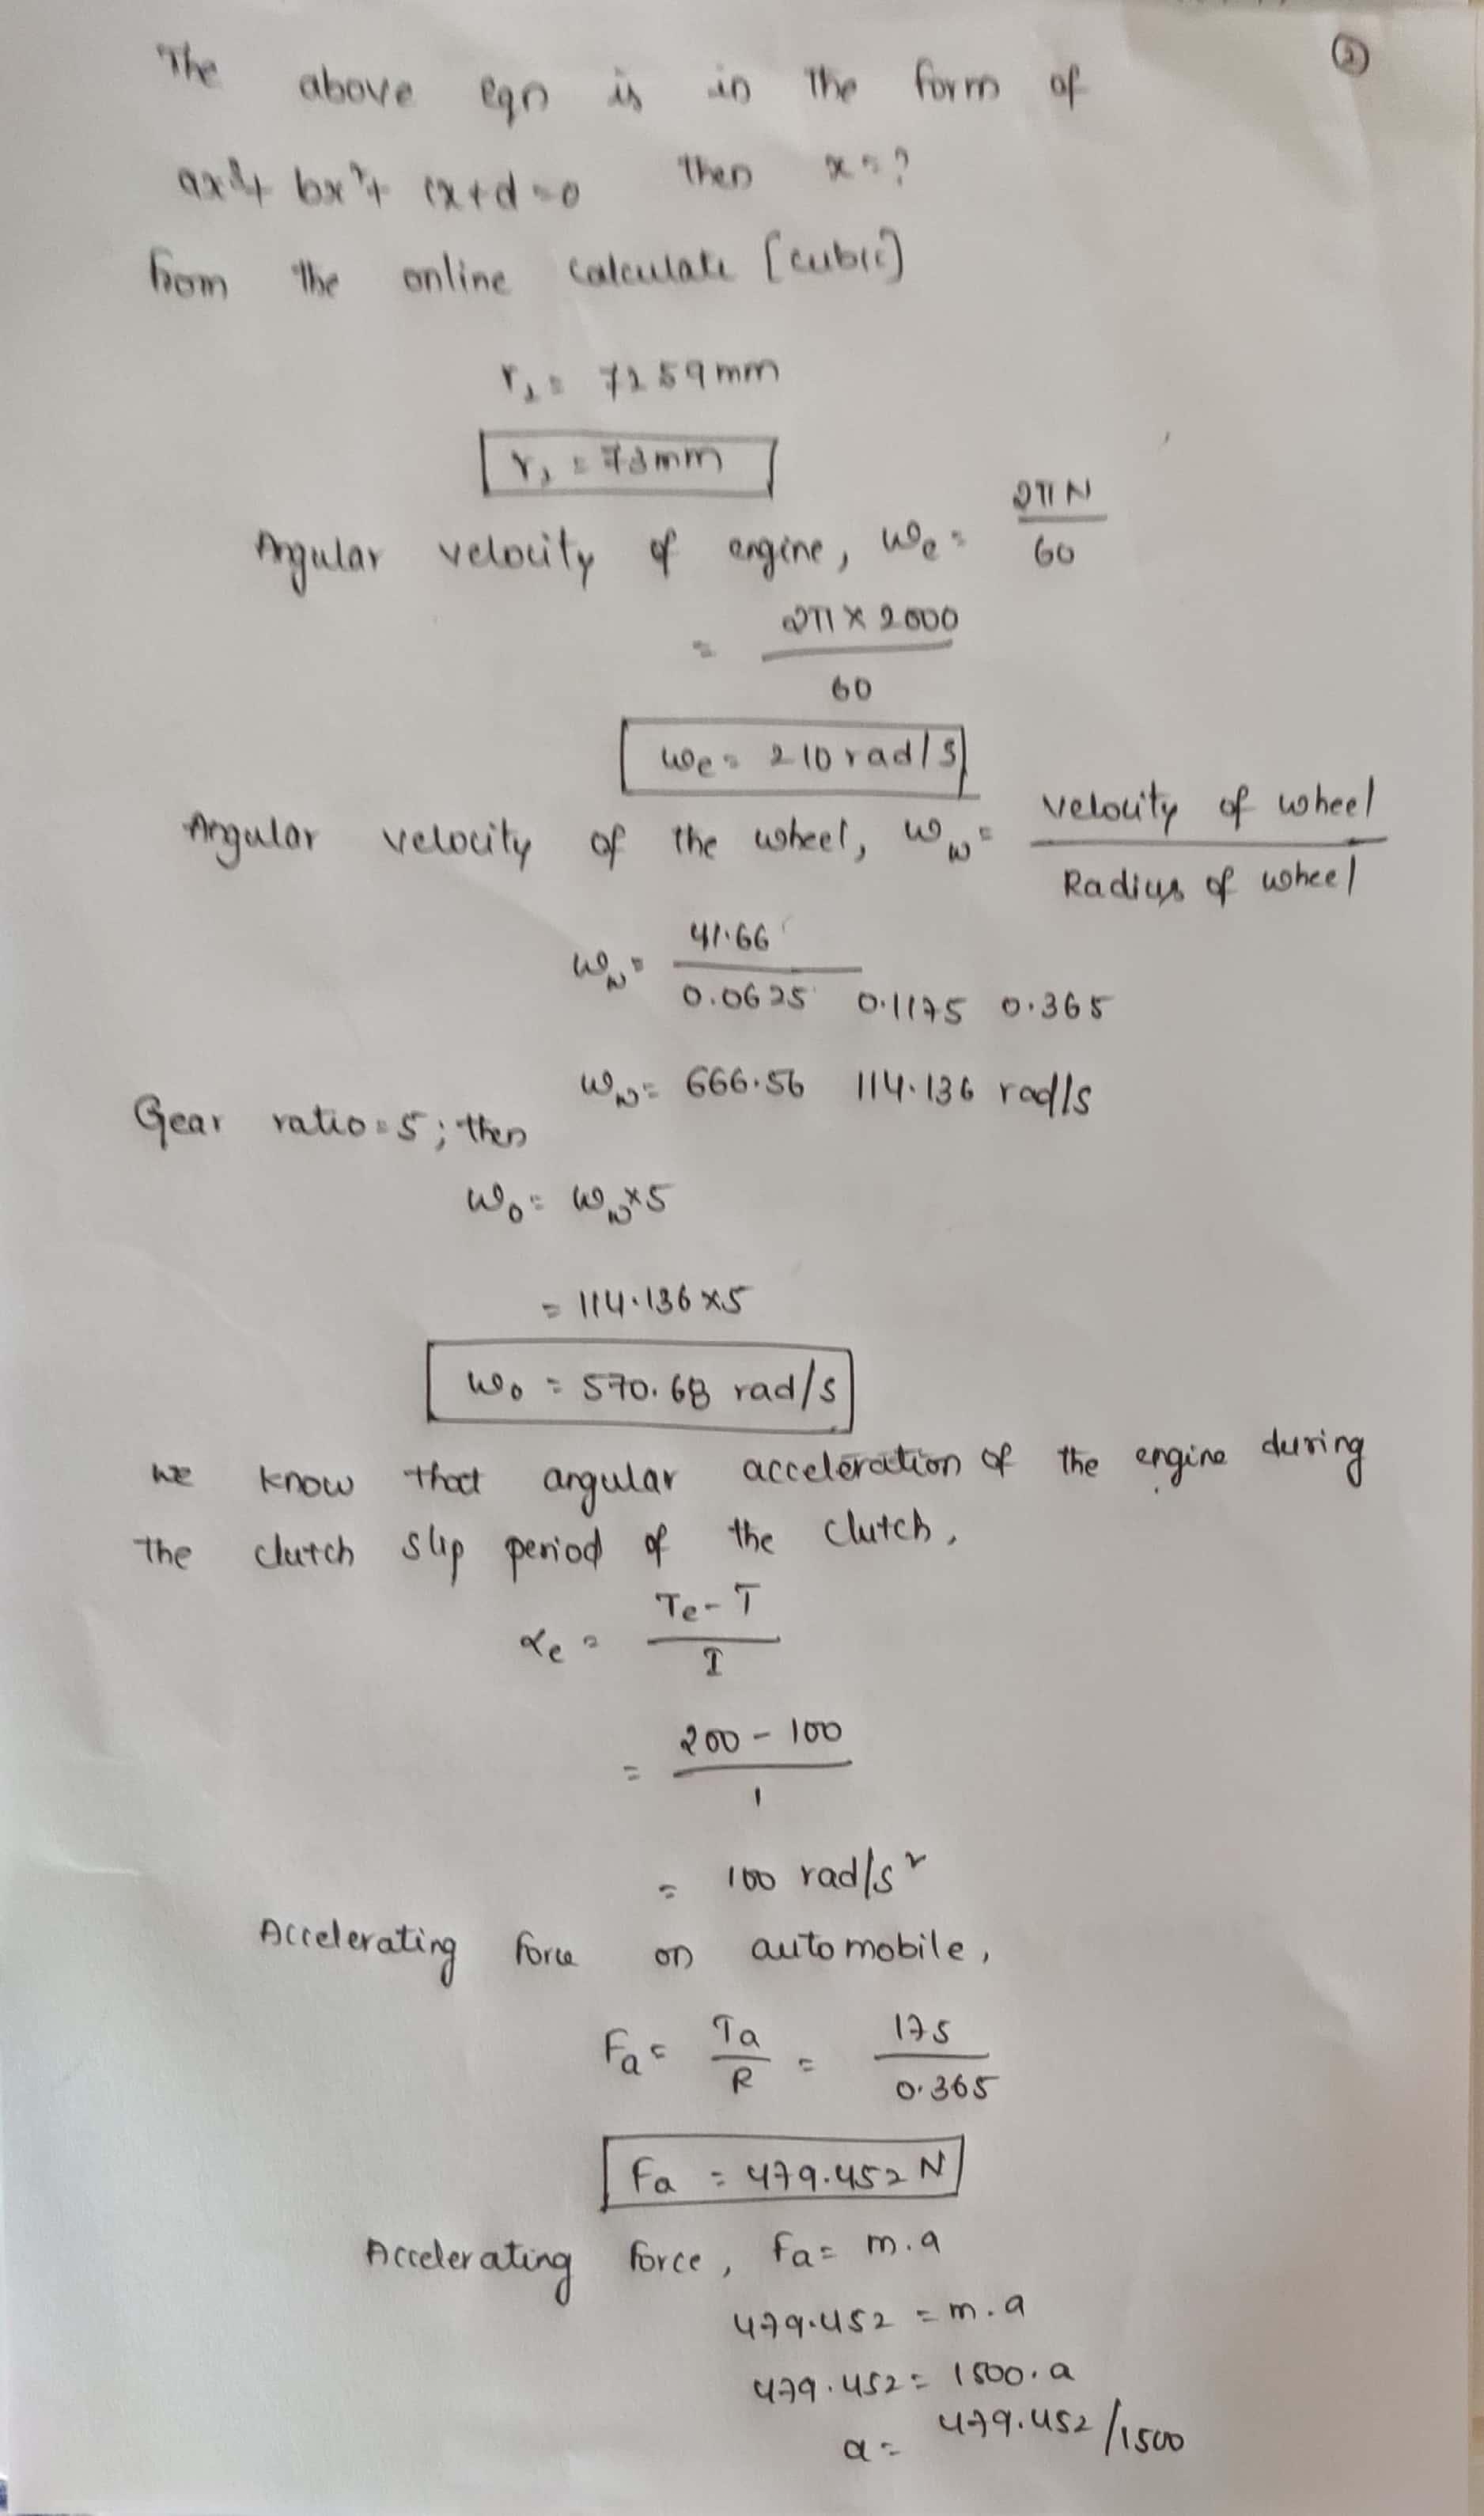 ②
The above eqn is in the form of
ax³+ bx²+ cx+d=0 then x=?
from the online calculate [cubic]
r₂= 7259mm
r₂ = 73mm
Angular velocity of engine, ωe= 2πN/60
= 2π×2000/60
ωe= 210 rad/s
Angular velocity of the wheel, ωw= velocity of wheel/Radius of wheel
ωw= 41.66/0.0625 0.1175 0.365
ωw= 666.56 114.136 rad/s
Gear ratio=5; then
ωo= ωw×5
= 114.136×5
ωo = 570.68 rad/s
we know that angular acceleration of the engine during
the clutch slip period of the clutch,
αe = Te-T/I
= 200-100/1
= 100 rad/s²
Accelerating force on automobile,
Fa= Ta/R = 175/0.365
Fa = 479.452 N
Accelerating force, Fa= m.a
479.452 = m.a
479.452= 1500.a
a= 479.452/1500